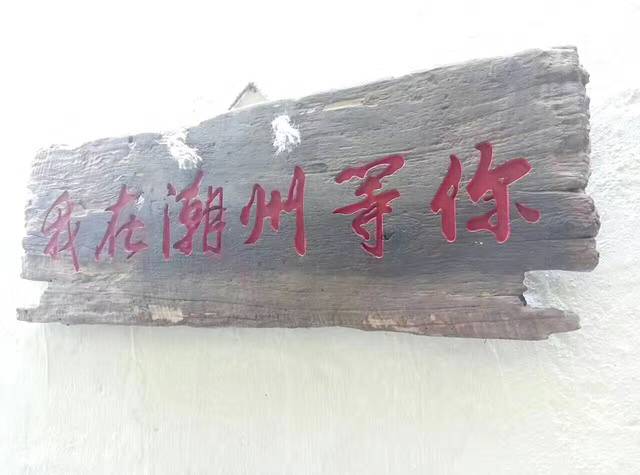 我在潮州等你